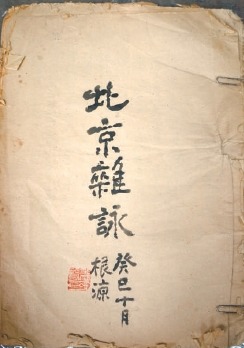 北京雜詠
癸巳十月
根源